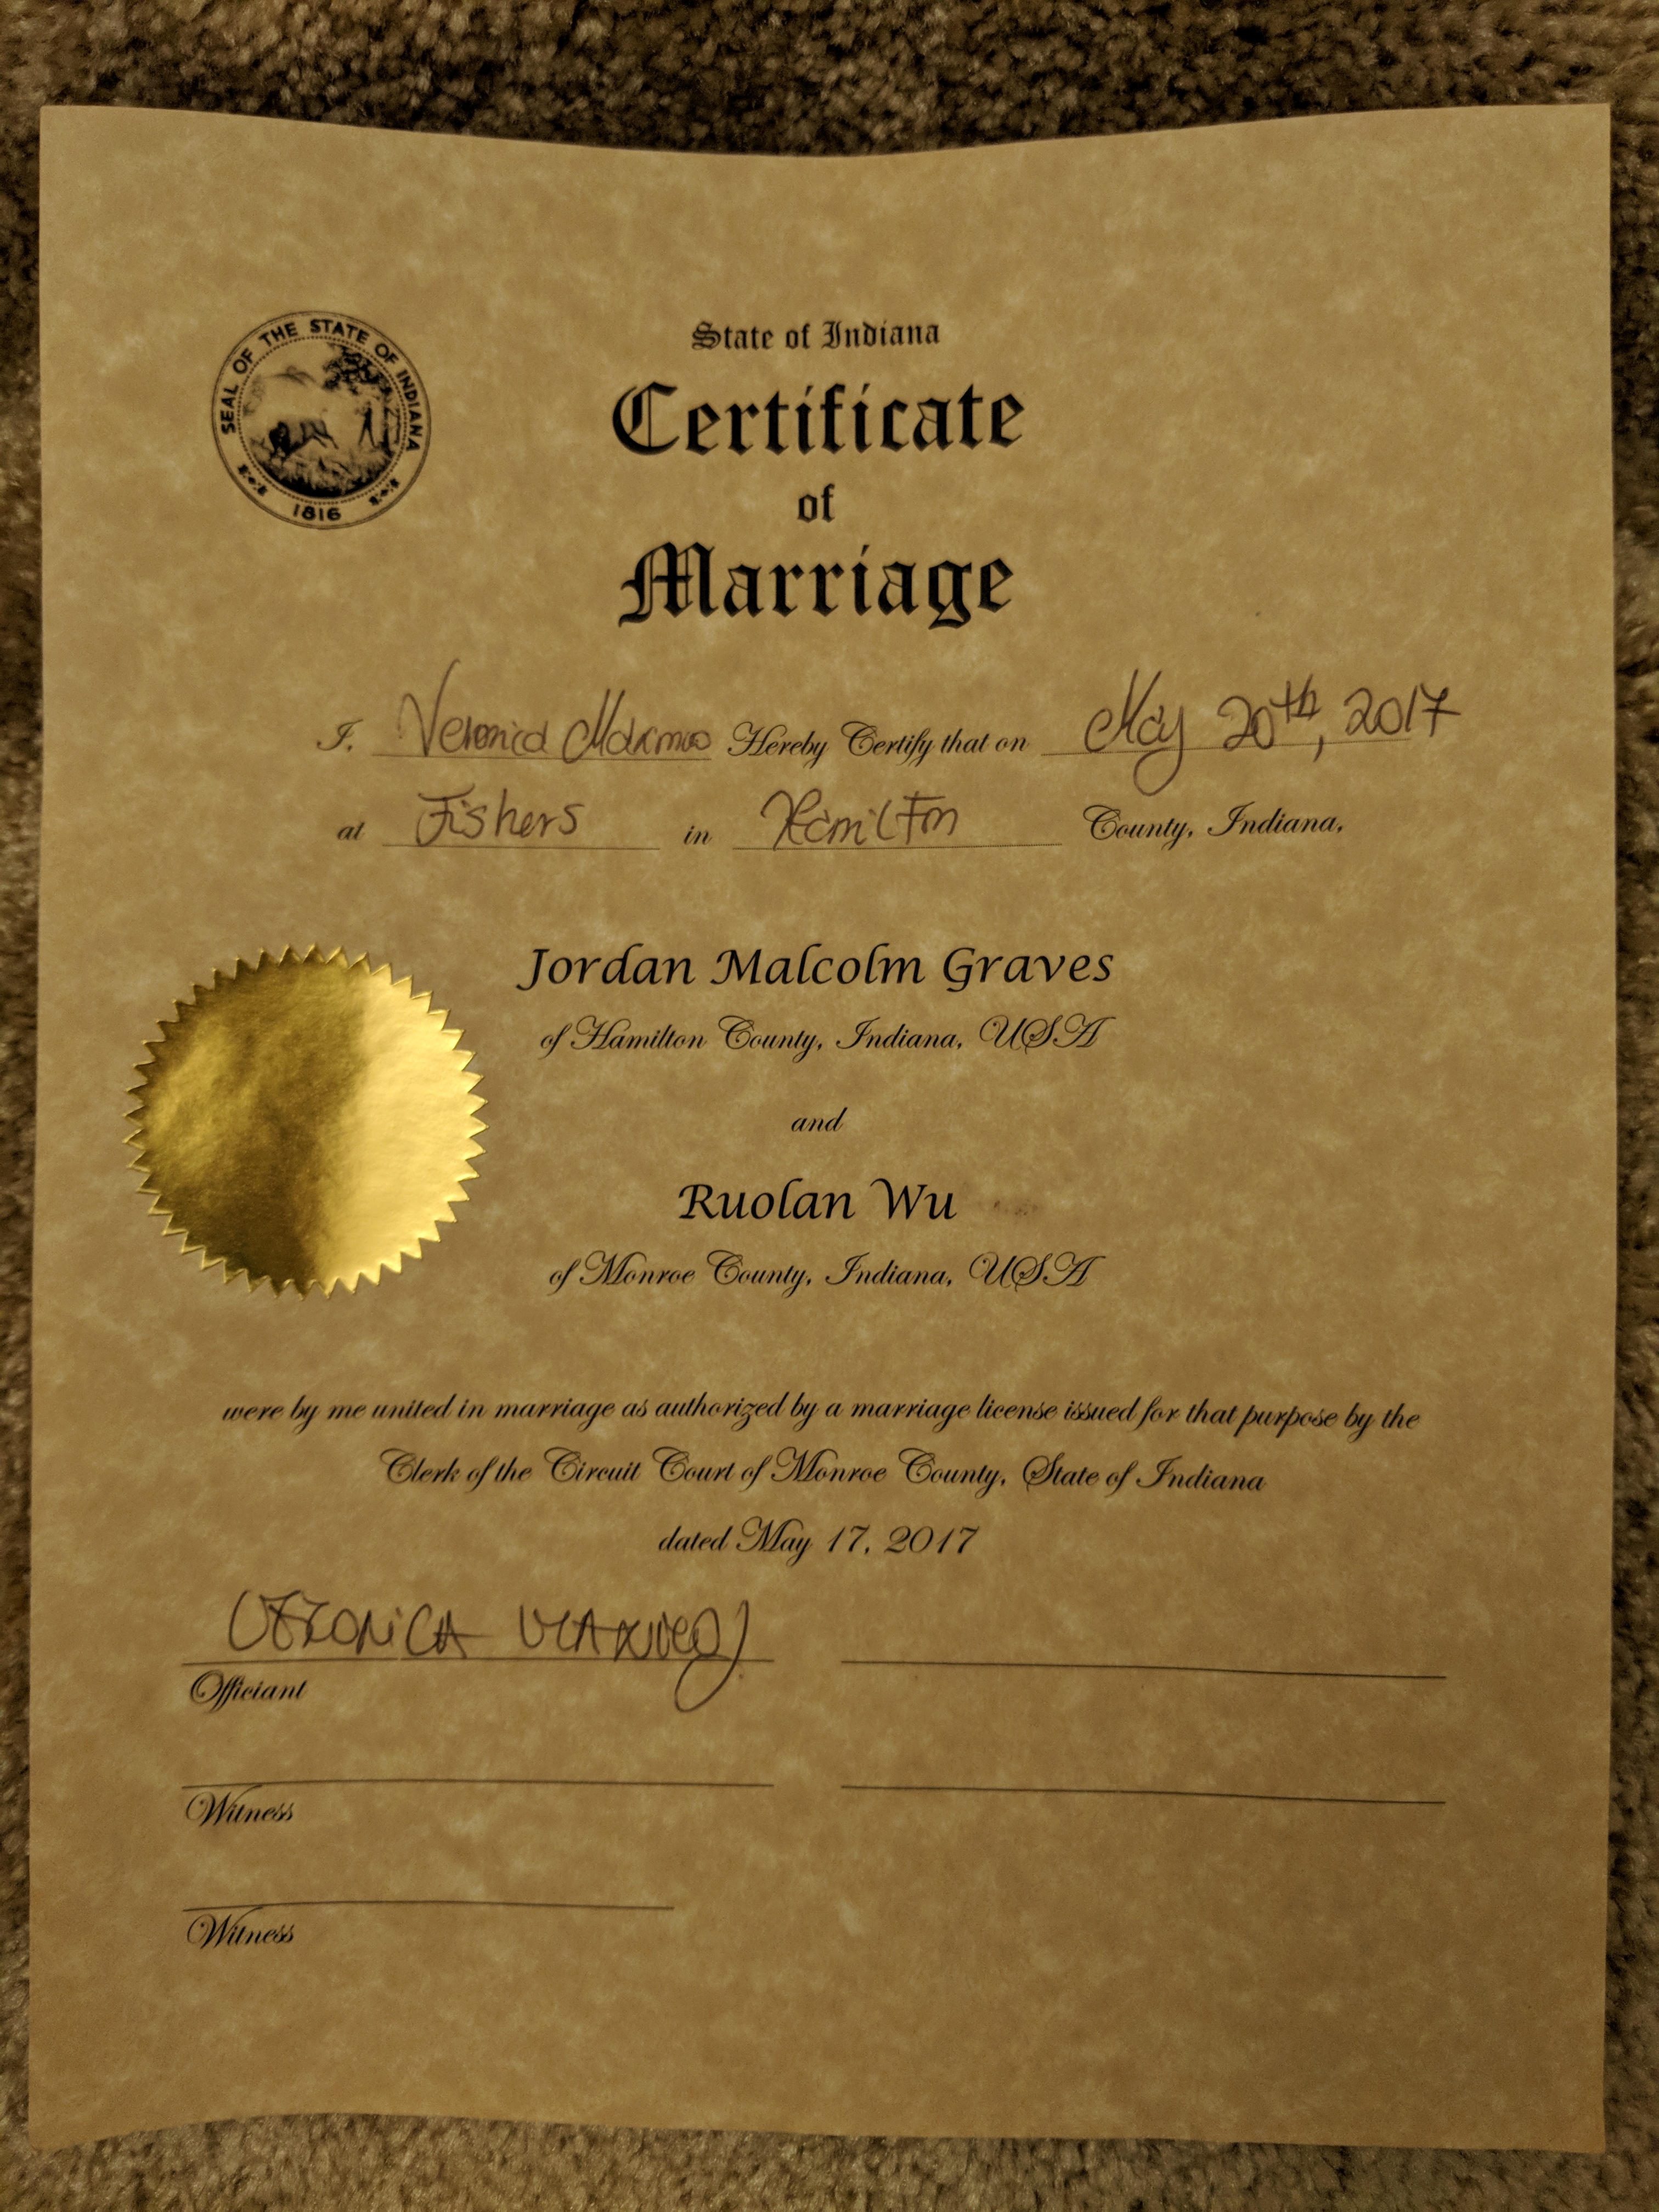 SEAL OF THE STATE OF INDIANA
1816
State of Indiana
Certificate
of
Marriage
I, Veronica Hereby Certify that on May 20th, 2017
at Fishers in Hamilton County, Indiana,
Jordan Malcolm Graves
of Hamilton County, Indiana, USA
and
Ruolan Wu
of Monroe County, Indiana, USA
were by me united in marriage as authorized by a marriage license issued for that purpose by the
Clerk of the Circuit Court of Monroe County, State of Indiana
dated May 17, 2017
VERONICA
Officiant
Witness
Witness